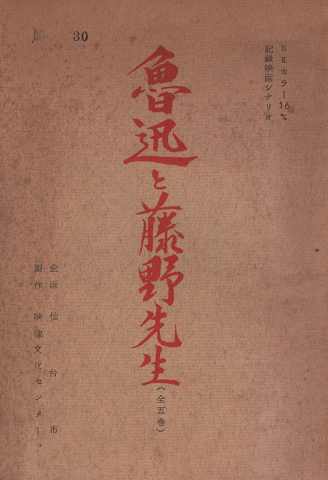 30
EKカラー16㍉
記録映画シナリオ
魯迅と藤野先生
(全五巻)
企画 仙台市
製作 映像文化センター